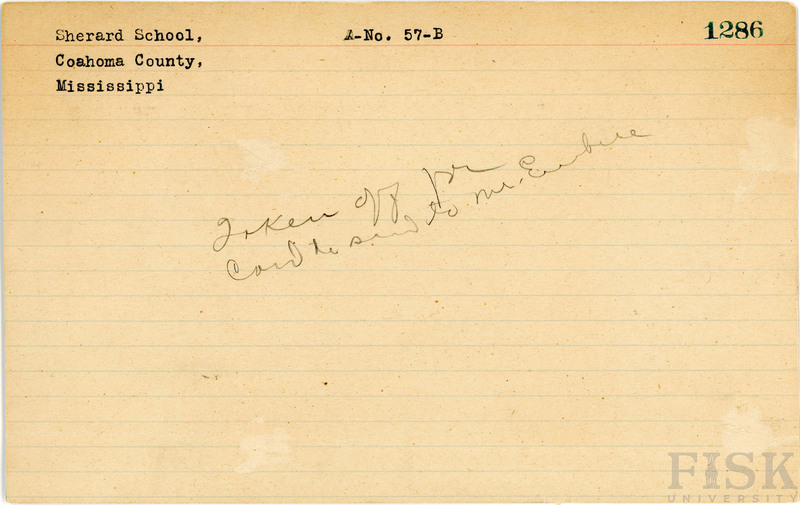 Sherard School, A-No. 57-B 1286
Coahoma County,
Mississippi
Taken off for
Card to send to Mr. Embree
FISK
UNIVERSITY